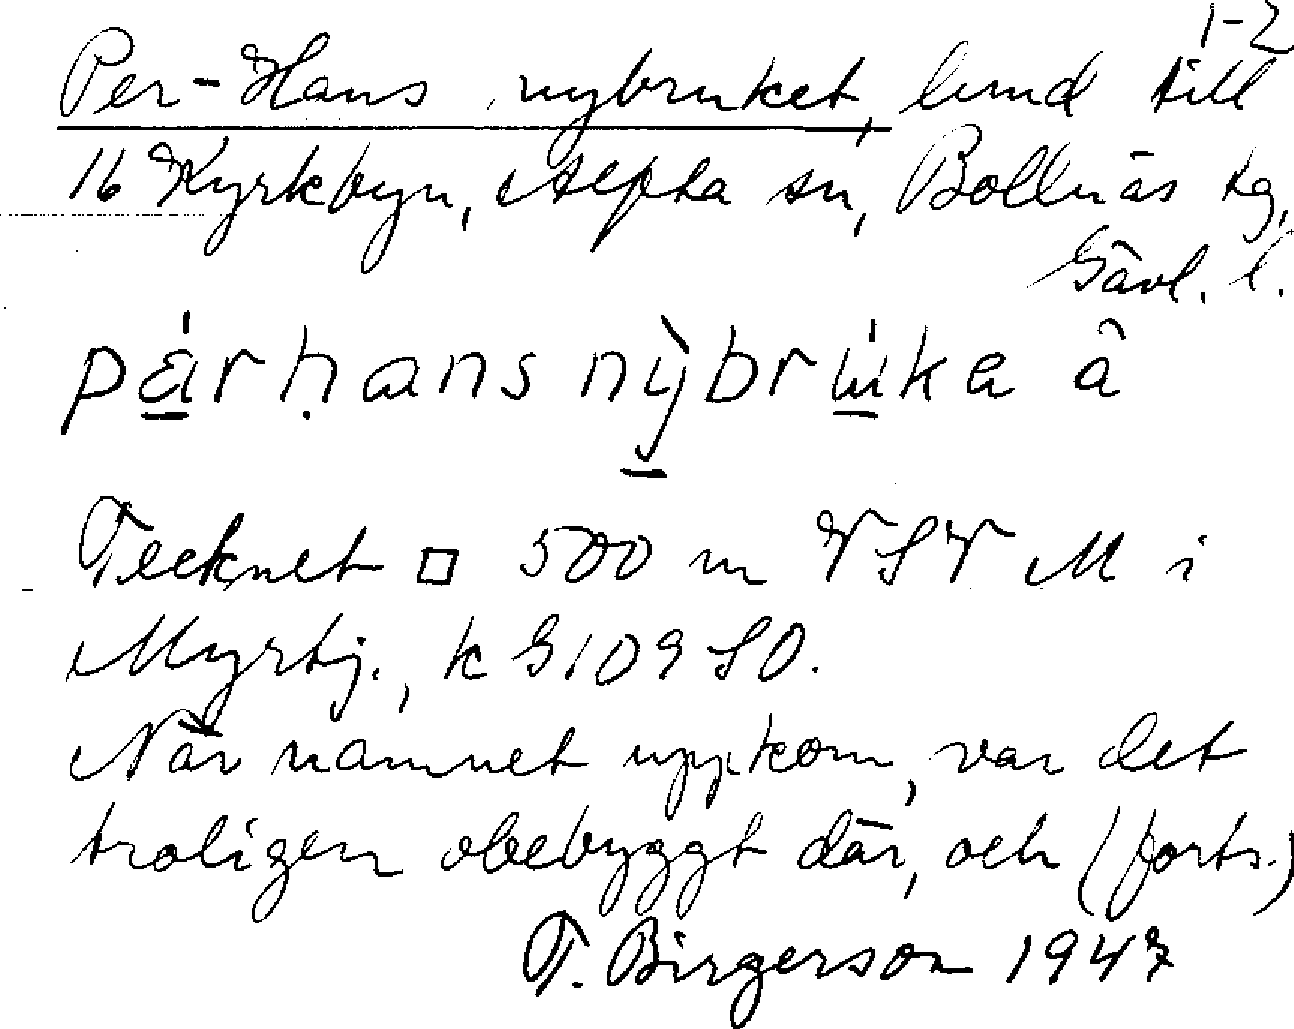 1-2
Per-Hans nybruket, lund till
16 Kyrkbyn, Alfta sn, Bollnäs tg,
Gävl. l.
pärhans nỳbruka â
Tecknet □ 500 m VSV M i
Myrtj., k G109 SO.
När namnet uppkom, var det
troligen obebyggt där, och (forts.)
T. Birgerson 1947